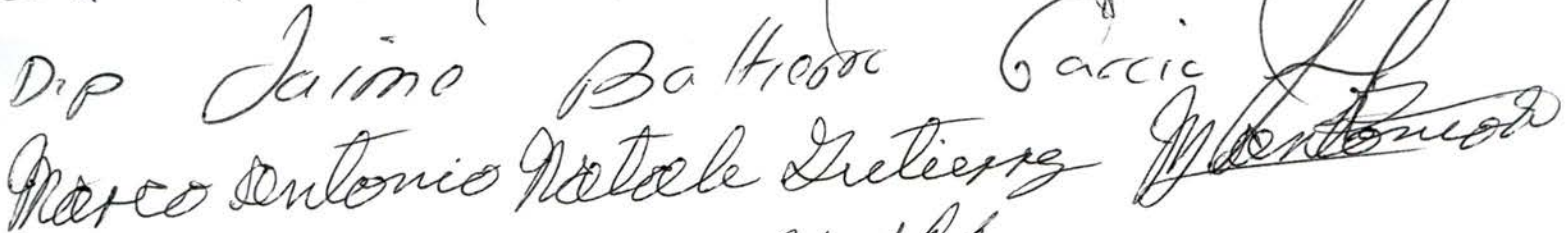 Dip Jaime Baltierra Garcia
Marco Antonio Natale Gutierrez